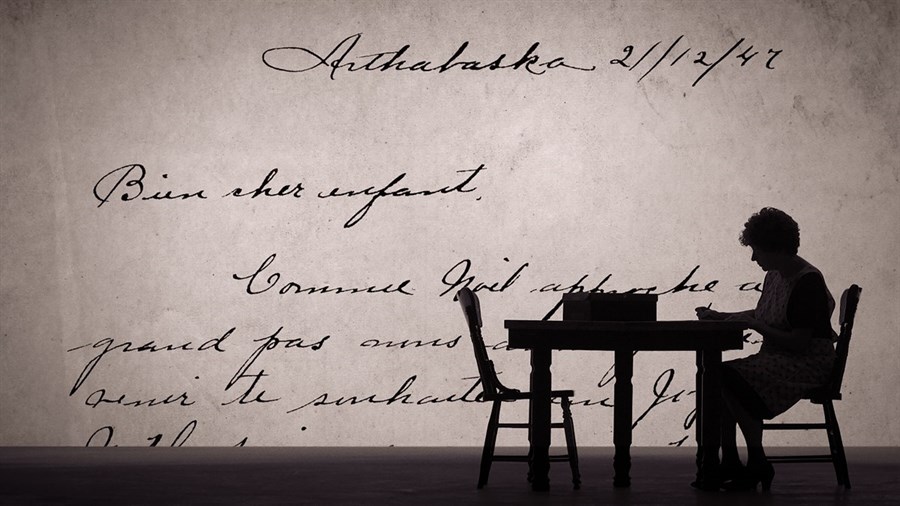 Arthabaska 21/12/47
Bien cher enfant,
Comme Noël approche a
grand pas nous
venir te souhaite un Joy